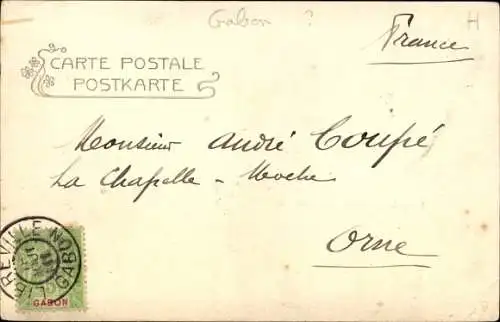 Gabon ?
H
France
CARTE POSTALE
POSTKARTE
Monsieur André Coupé
La Chapelle - Moche
Orne
LIBREVILLE GABON
GABON